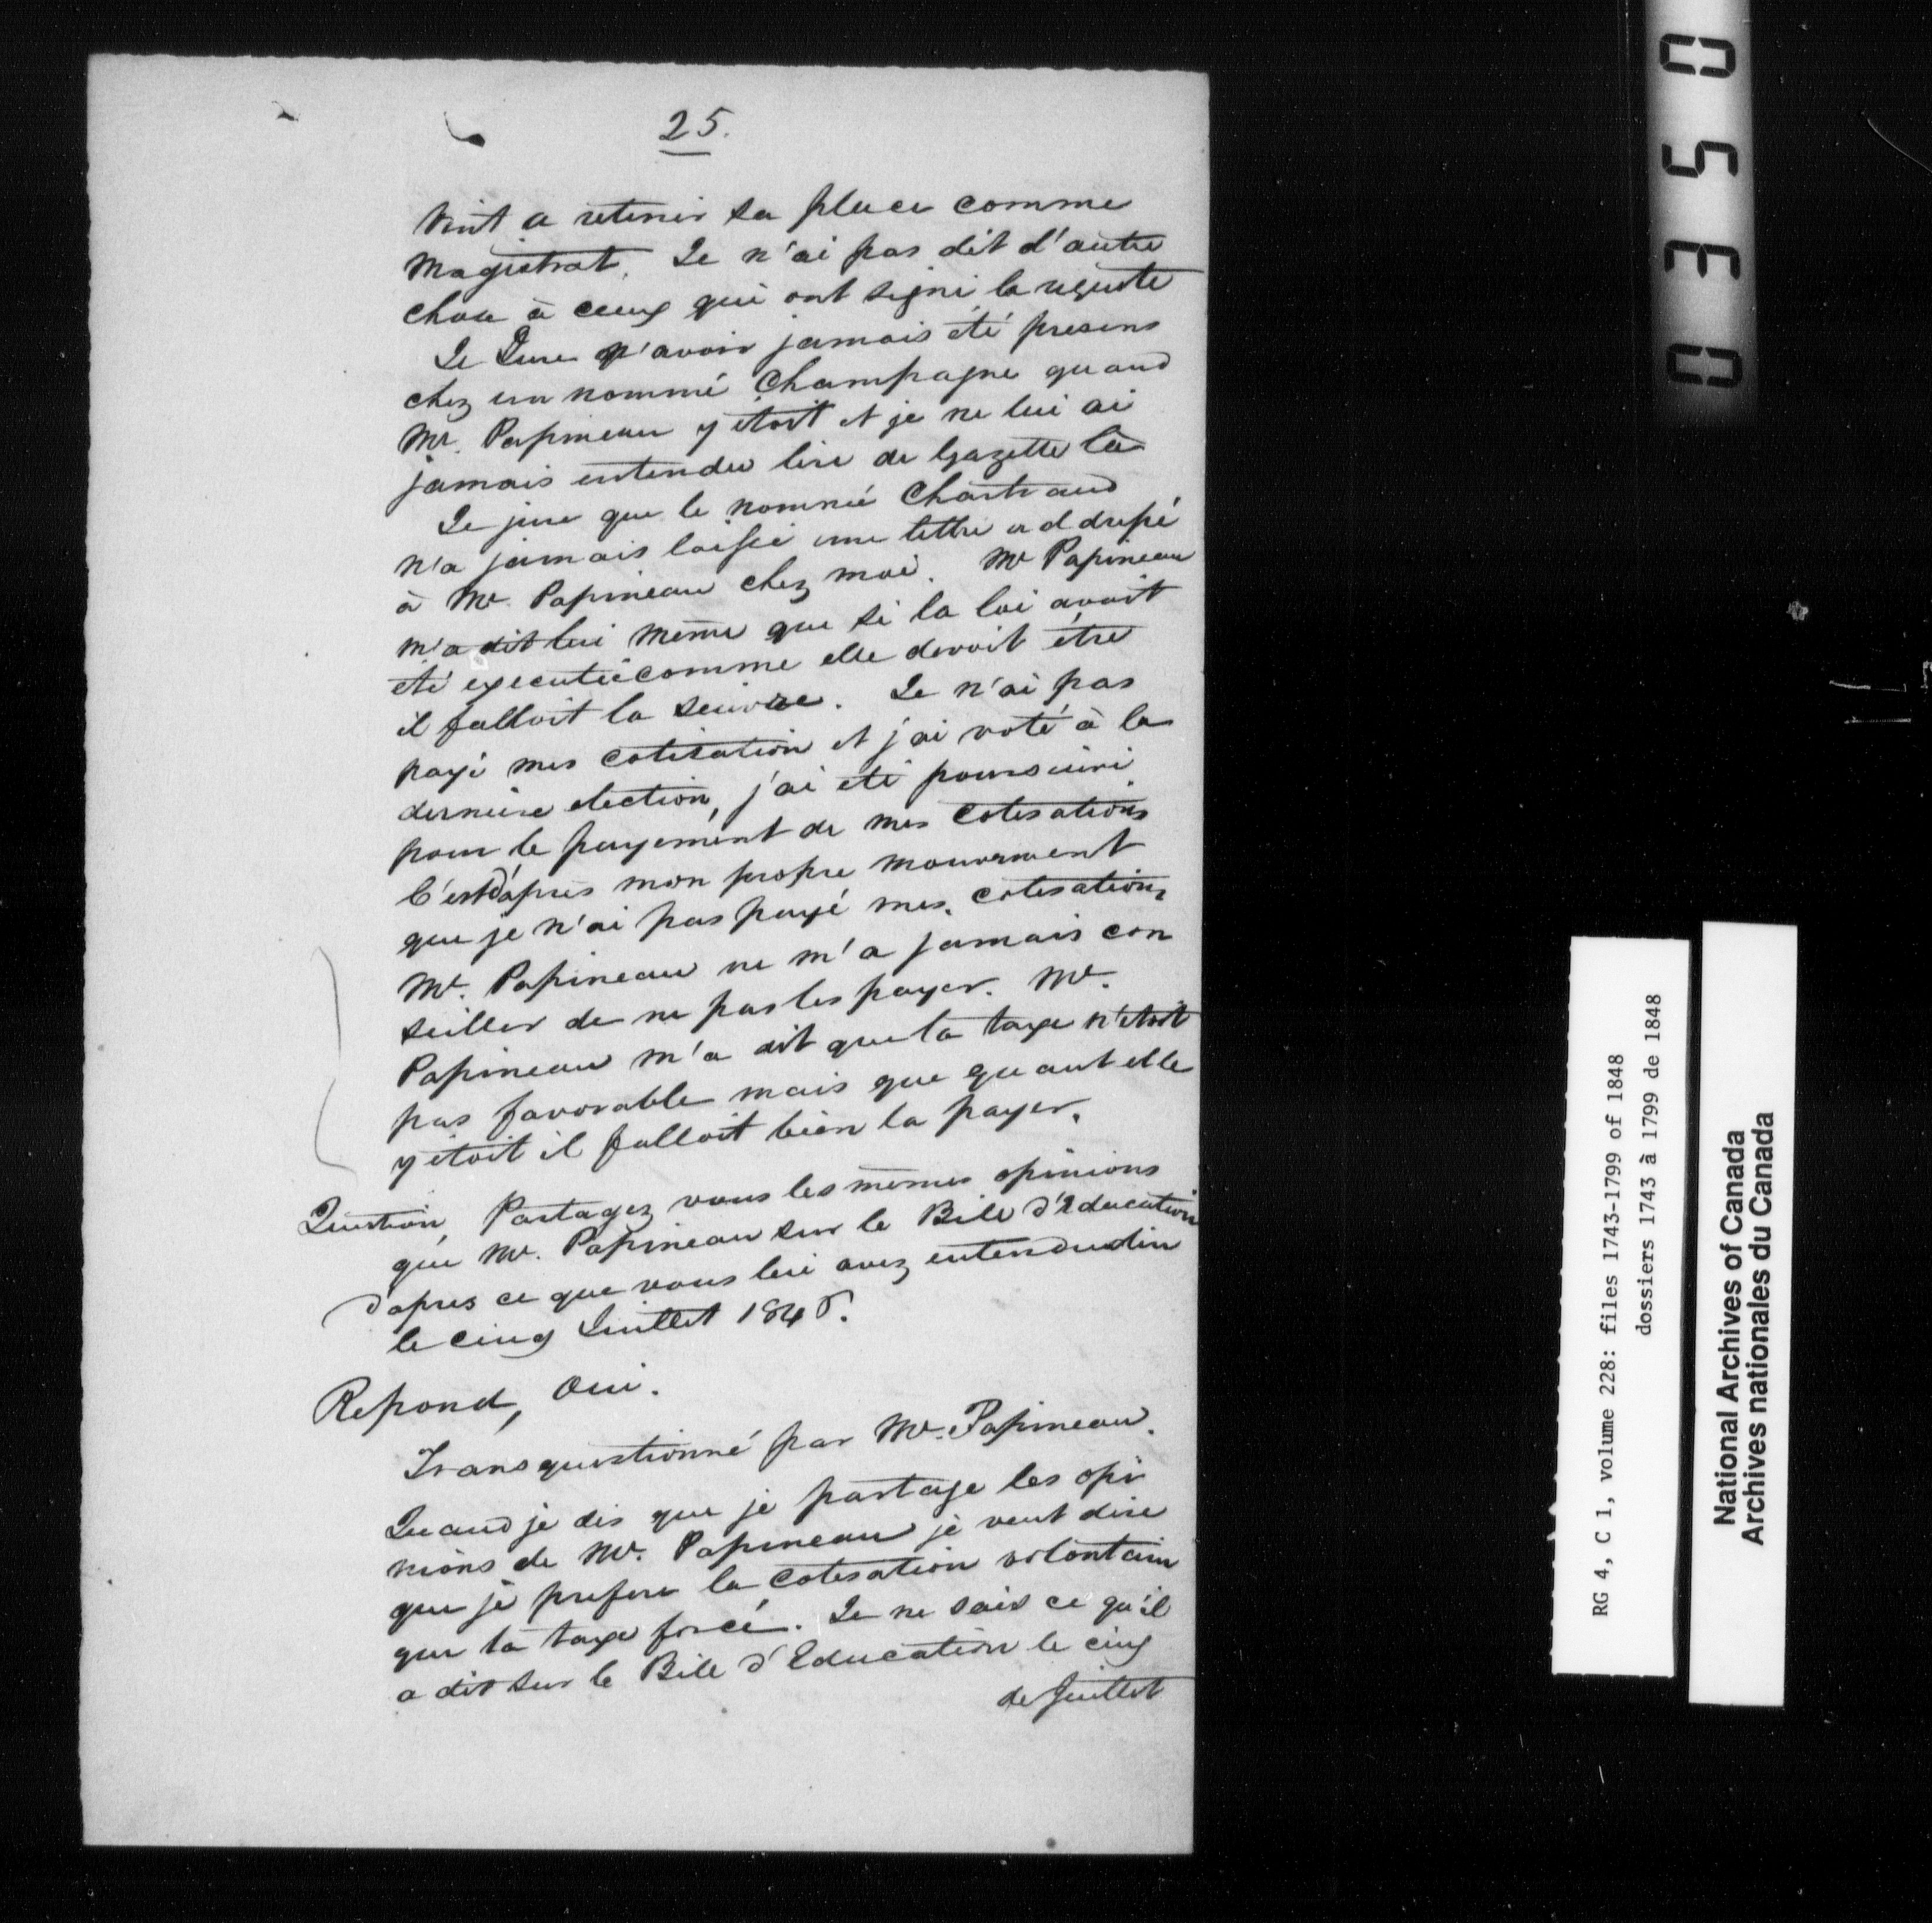 25.
vint a retenir sa place comme
Magistrat. Je n'ai pas dit d'autre
chose à ceux qui ont signé la requete
Je Jure n'avoir jamais été presens
chez un nommé Champagne quand
Mr. Papineau y étoit et je ne lui ai
jamais entendu lire de Gazette là
Je jure que le nommé Chartrand
n'a jamais laissé une lettre addressé
à Mr. Papineau chez moi. Mr Papineau
m'a dit lui même que si la loi avoit
été executée comme elle devoit être
il falloit la suivre. Je n'ai pas
payé mes cotisation et j'ai voté à la
derniere election, j'ai eté poursuivi
pour le payement de mes cotisations
C'est d'après mon propre mouvement
que je n'ai pas payé mes cotisations
Mr. Papineau ne m'a jamais con
seiller de ne pas les payer. Mr.
Papineau m'a dit que la taxe n'étoit
pas favorable mais que quant elle
y étoit il falloit bien la payer.
Question, Partagez vous les mêmes opinions
que Mr. Papineau sur le Bill d'Education
d'apres ce que vous lui avez entendu dire
le cinq Juillet
Repond, Oui.
Transquestionné par Mr. Papineau.
Quand je dis que je partage les opi
nions de Mr. Papineau je veut dire
que je prefere la cotisation volontaire
que la taxe forcé. Je ne sais ce qu'il
a dit sur le Bill d'Education le cinq
de Juillet
0350
RG 4, C 1, volume 228: files 1743-1799 of 1848
dossiers 1743 à 1799 de 1848
National Archives of Canada
Archives nationales du Canada